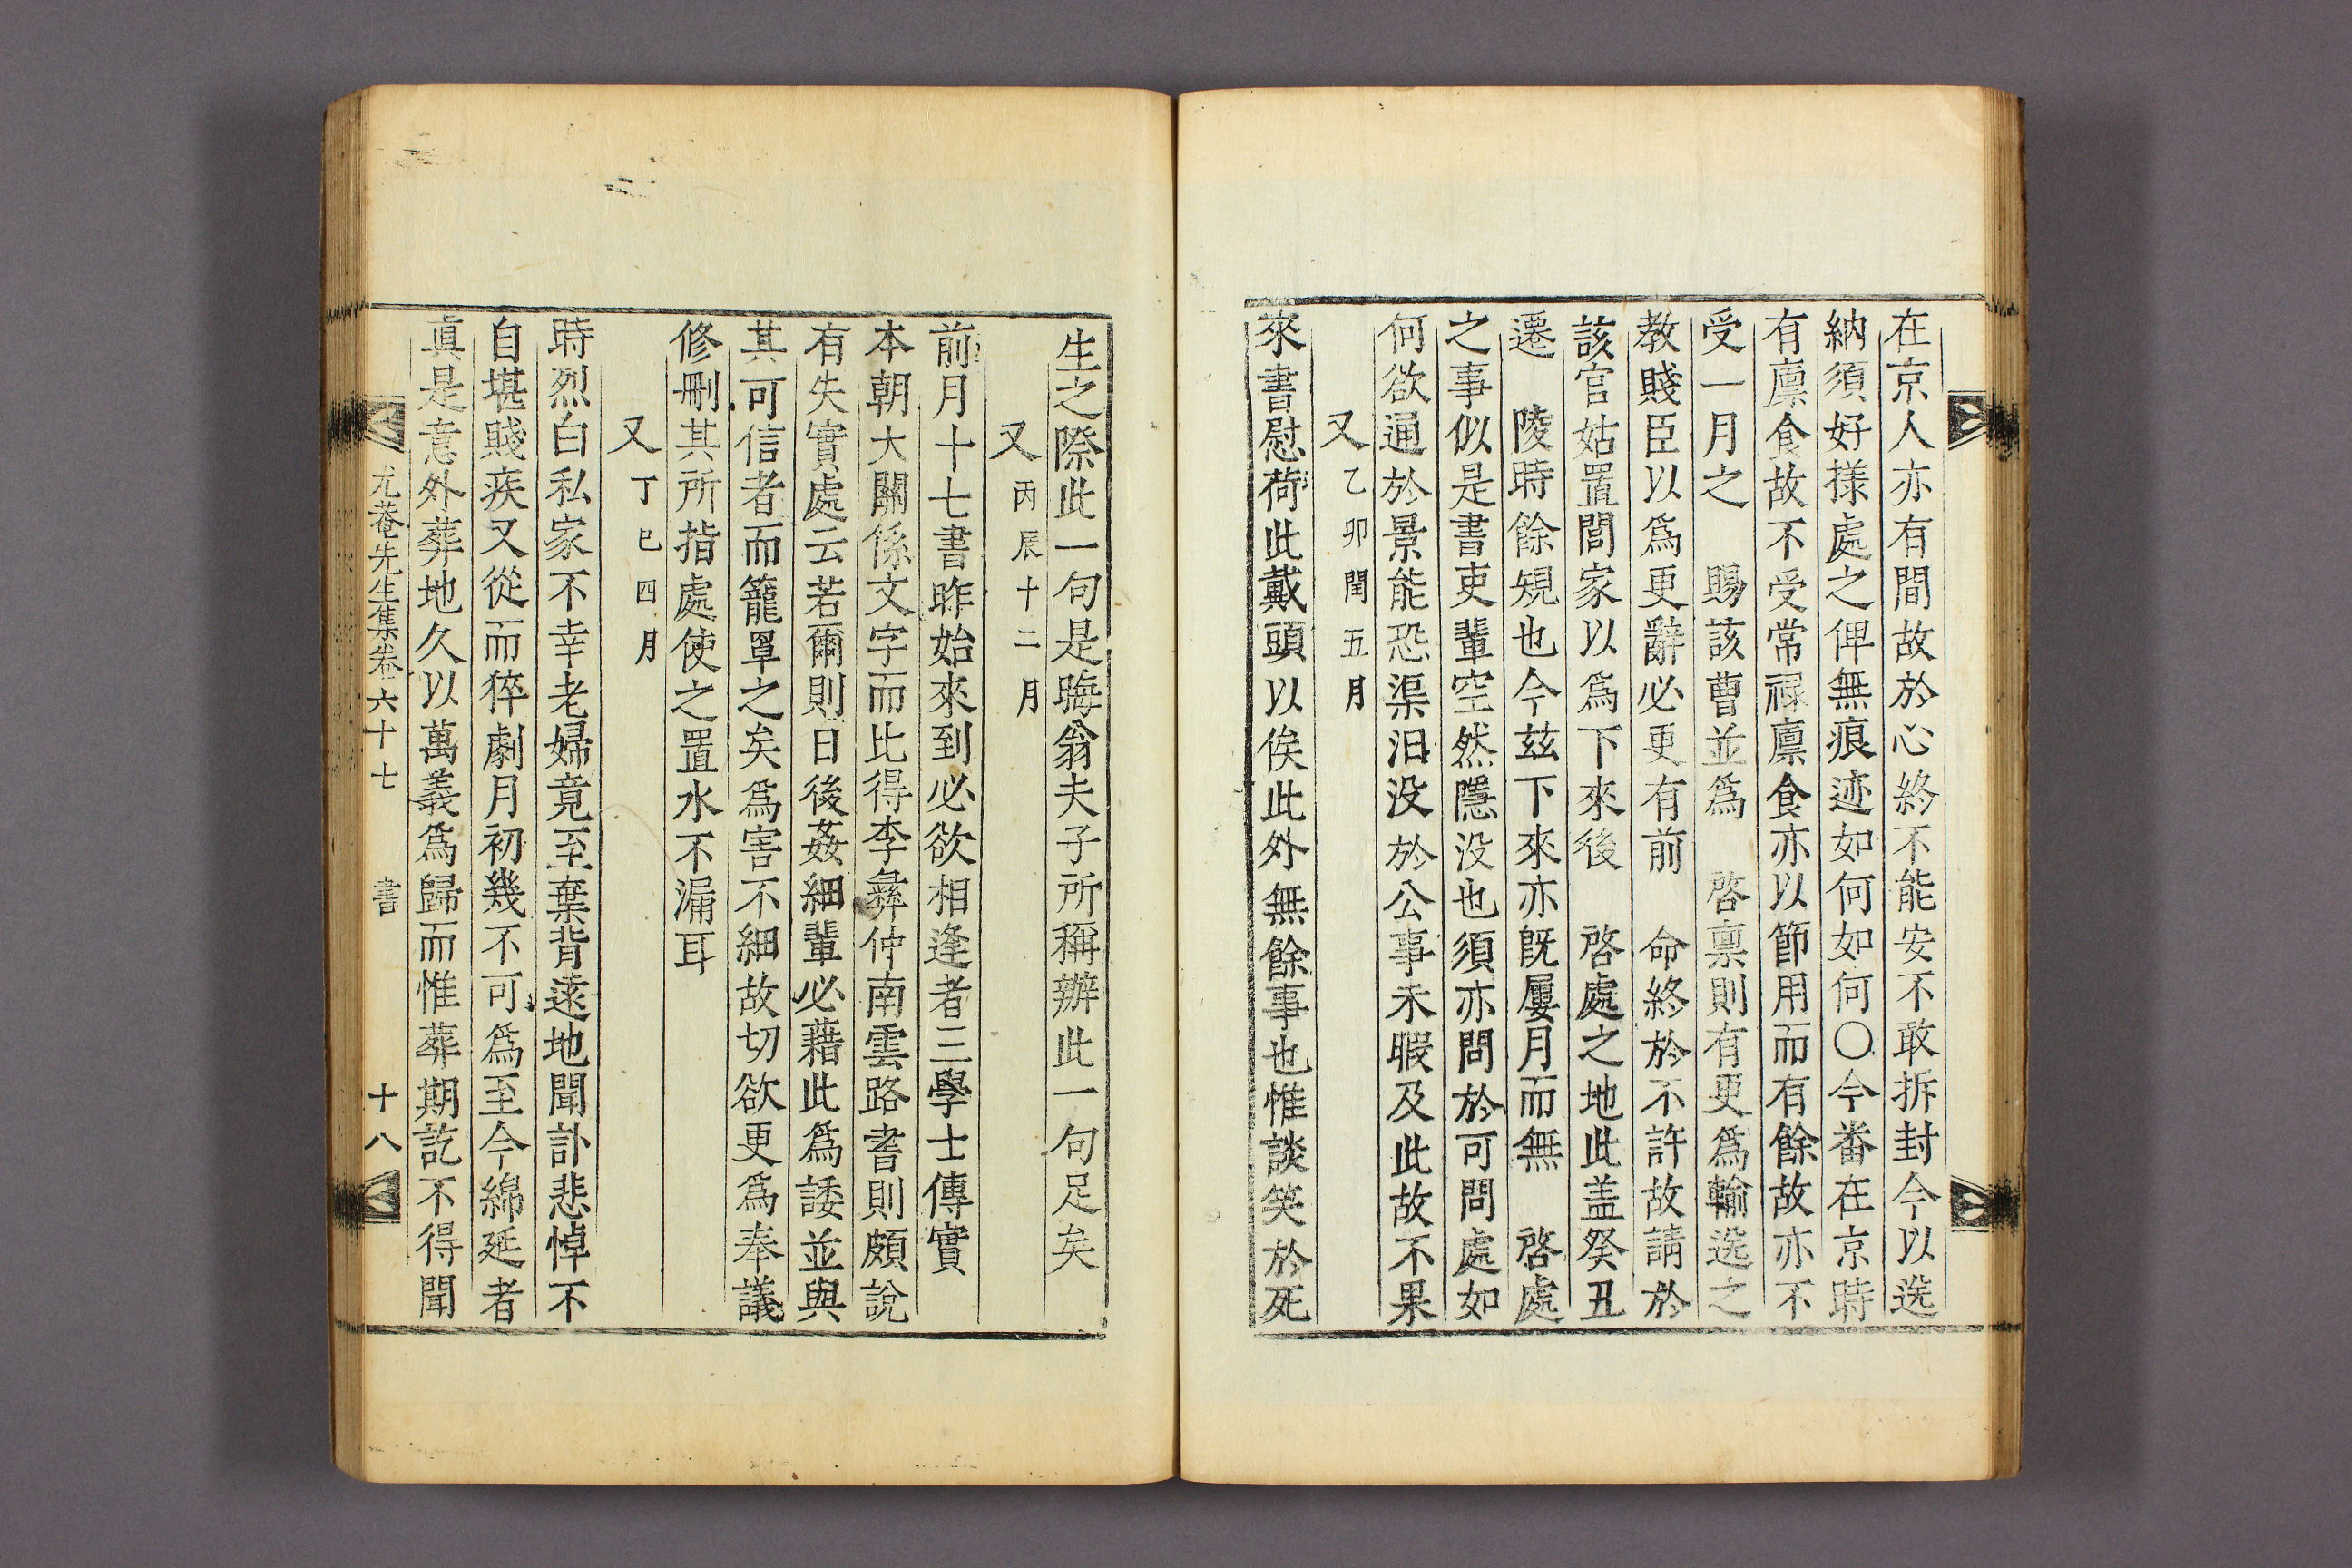 在京人亦有間故於心終不能安不敢拆封今以送
納須好樣處之俾無痕迹如何如何○今番在京時
有廩食故不受常祿廩食亦以節用而有餘故亦不
受一月之 賜該曹並爲 啓禀則有更爲輸送之
教賤臣以爲更辭必更有前 命終於不許故請於
該官姑置閭家以爲下來後 啓處之地此盖癸丑
遷 陵時餘規也今玆下來亦旣屢月而無 啓處
之事似是書吏輩空然隱没也須亦問於可問處如
何欲通於景能恐渠汨没於公事未暇及此故不果
又 乙卯閏五月
來書慰荷此戴頭以俟此外無餘事也惟談笑於死
生之際此一句是晦翁夫子所稱辦此一句足矣
又 丙辰十二月
前月十七書昨始來到必欲相逢者三學士傳實
本朝大關係文字而比得李彛仲南雲路書則頗說
有失實處云若爾則日後姦細輩必藉此爲諉並與
其可信者而籠罩之矣爲害不細故切欲更爲奉議
修刪其所指處使之置水不漏耳
又 丁巳四月
時烈白私家不幸老婦竟至棄背遠地聞訃悲悼不
自堪賤疾又從而猝劇月初幾不可爲至今綿延者
眞是意外葬地久以萬義爲歸而惟葬期訖不得聞
尤菴先生集卷六十七 書 十八